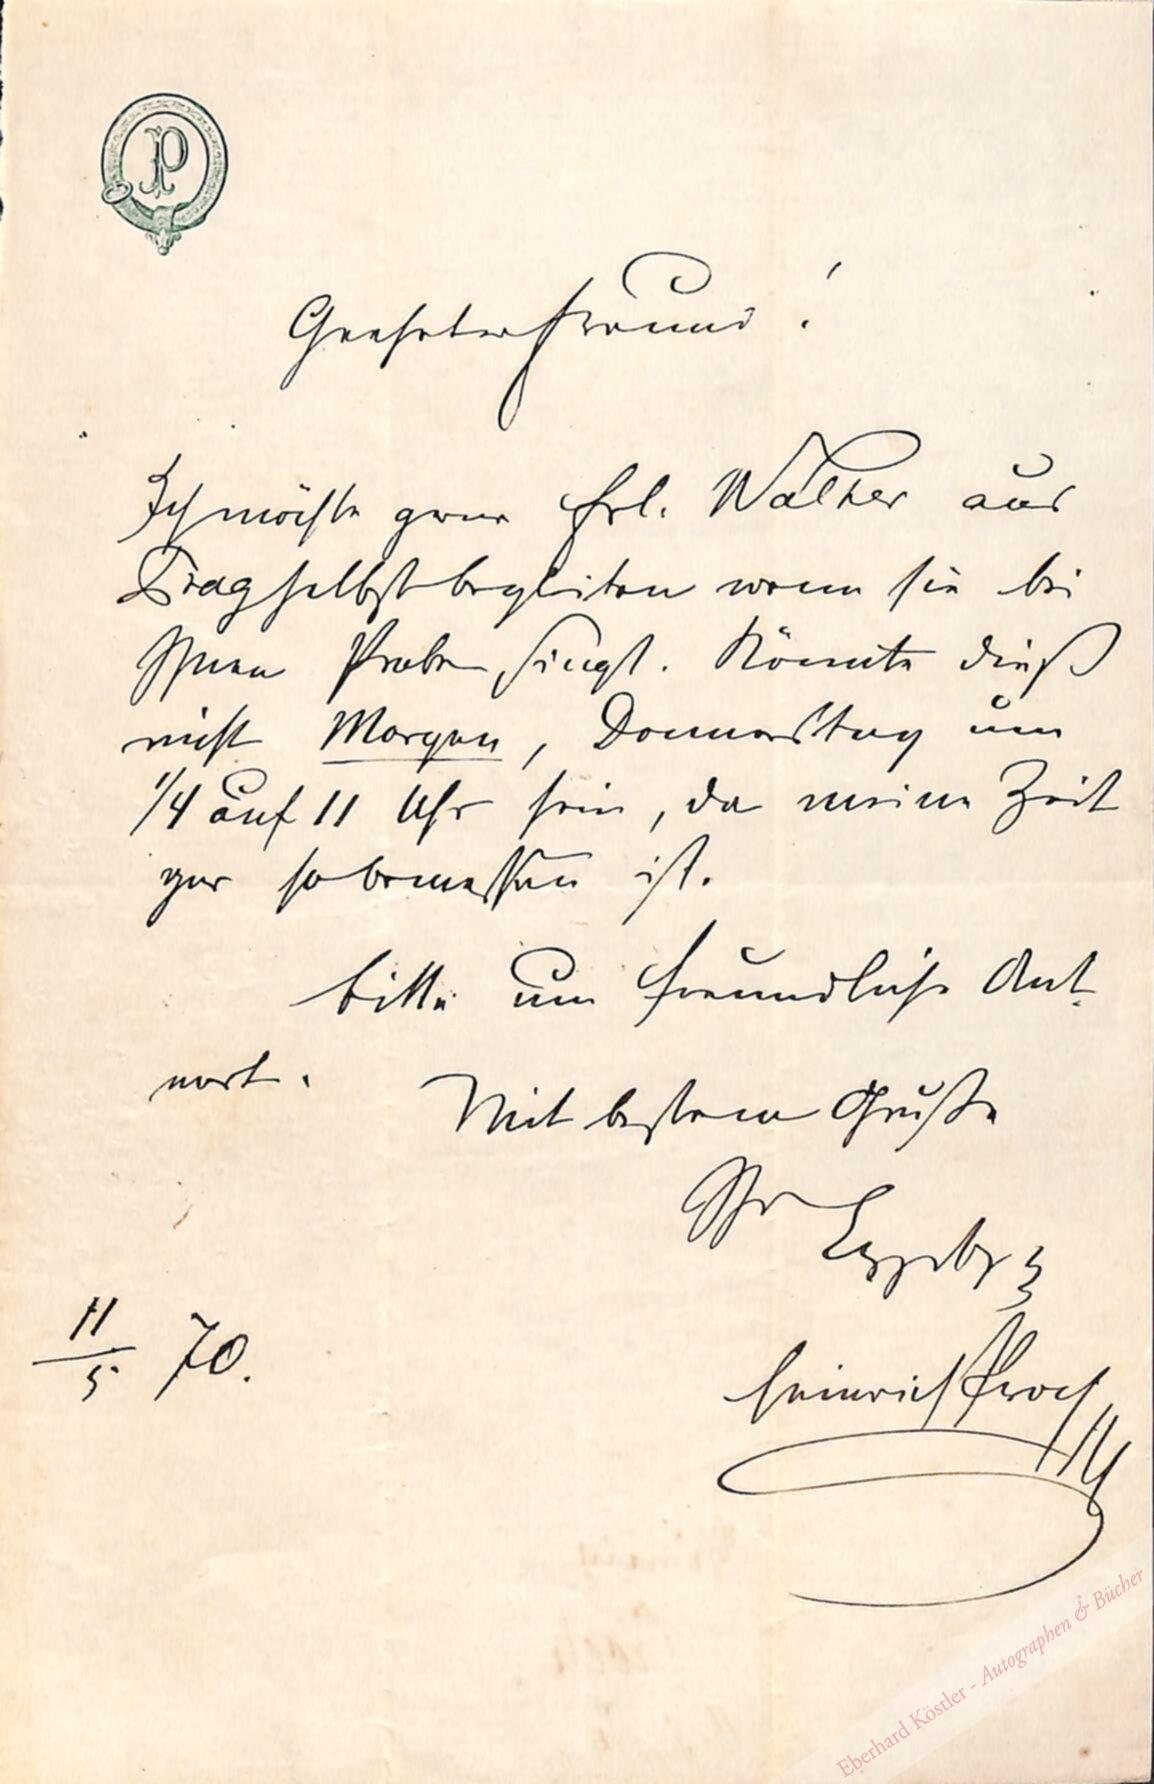 P
Geehrter Freund!
Ich möchte gerne Frl. Walter aus
Prag selbst begleiten wenn sie bei
Ihnen Probe singt. Könnte dieß
nicht Morgen, Donnerstag um
1/4 auf 11 Uhr sein, da meine Zeit
gar so bemessen ist.
Bitte um freundliche Ant-
wort. Mit bestem Gruße
Ihr
Ergeb
11/5 70.
Heinrich Proch
Eberhard Köstler - Autographen & Bücher